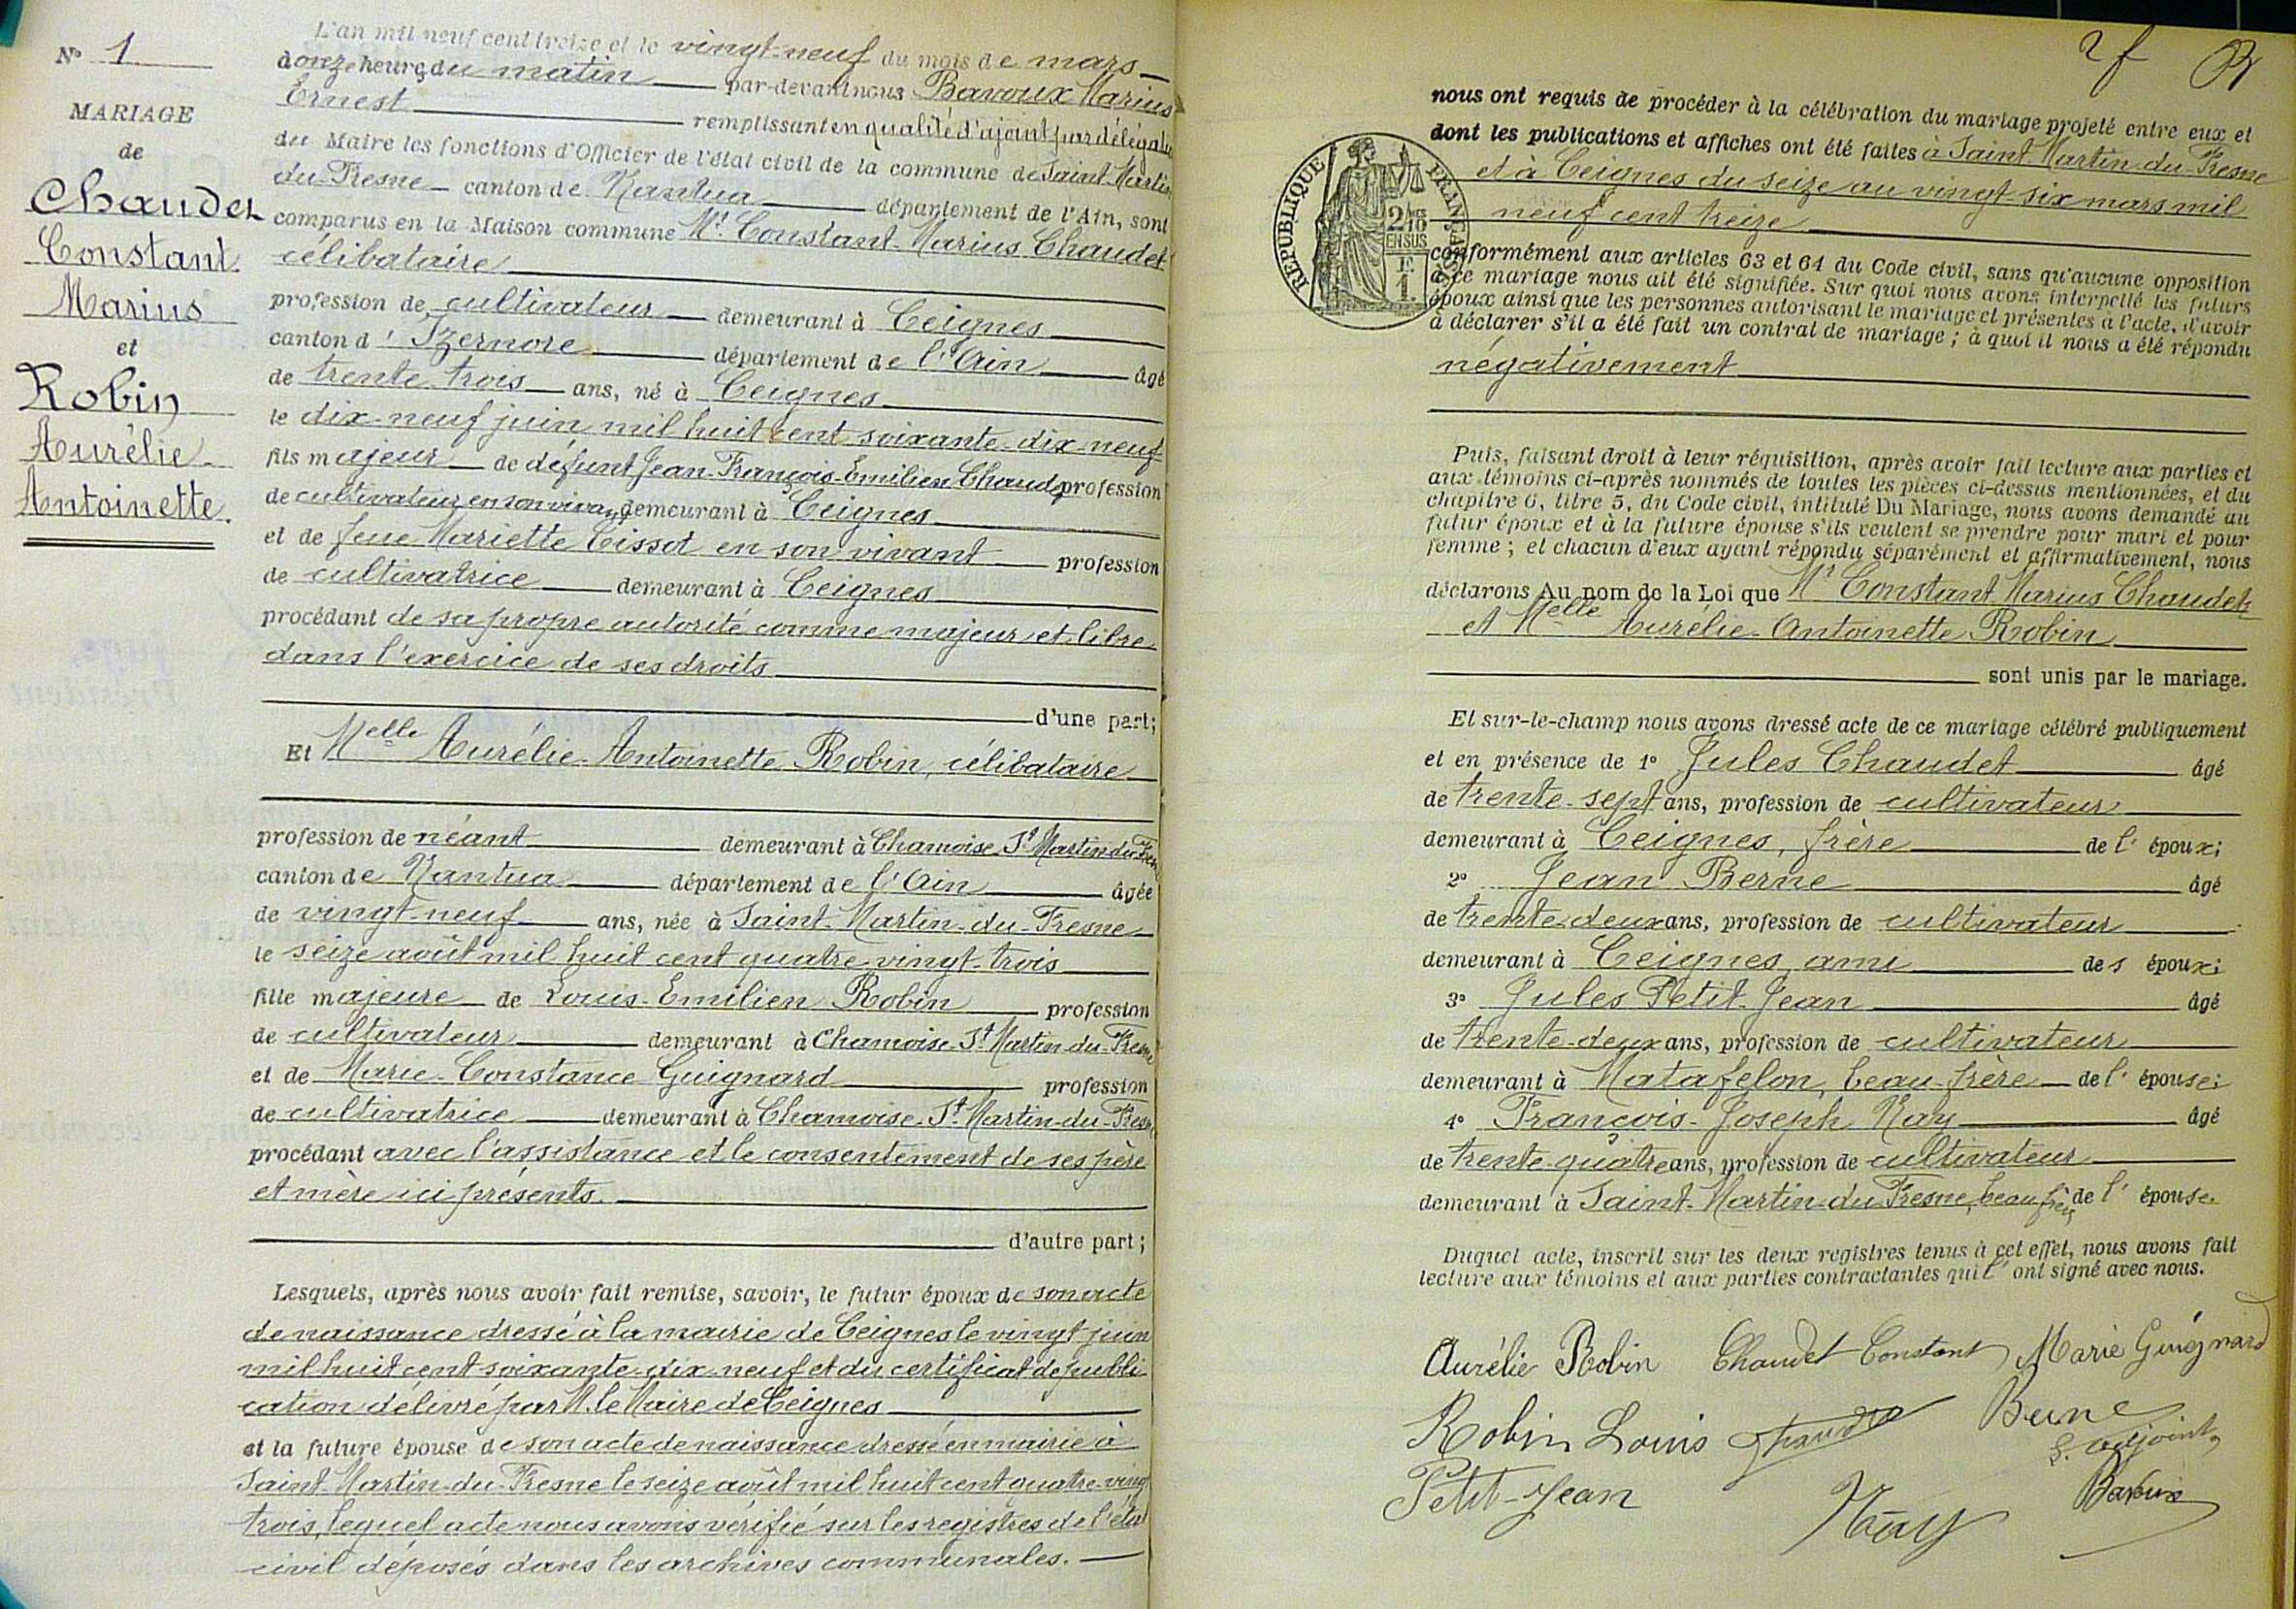 N° 1
MARIAGE
de
Chaudet
Constant
Marius
et
Robin
Aurélie
Antoinette.
L'an mil neuf cent treize et le vingt-neuf du mois de mars
à onze heures du matin par-devant nous Bavoux Marius
Ernest remplissant en qualité d'ajoint par délégation
du Maire les fonctions d'Officier de l'état civil de la commune de Saint-Martin
du-Fresne canton de Nantua département de l'Ain, sont
comparus en la Maison commune Mr. Constant-Marius Chaudet
célibataire
profession de cultivateur demeurant à Ceignes
canton d'Izernore département de l'Ain âgé
de trente trois ans, né à Ceignes
le dix-neuf juin mil huit cent soixante-dix-neuf
fils majeur de défunt Jean-François-Emilien Chaudet profession
de cultivateur en son vivant demeurant à Ceignes
et de feue Mariette Tissot en son vivant profession
de cultivatrice demeurant à Ceignes
procédant de sa propre autorité comme majeur et libre
dans l'exercice de ses droits
d'une part;
Et Melle Aurélie-Antoinette Robin, célibataire
profession de néant demeurant à Chamoise St Martin du Fresne
canton de Nantua département de l'Ain âgée
de vingt-neuf ans, née à Saint-Martin-du-Fresne
le seize août mil huit cent quatre vingt-trois
fille majeure de Louis-Emilien Robin profession
de cultivateur demeurant à Chamoise St Martin-du-Fresne
et de Marie-Constance Guignard profession
de cultivatrice demeurant à Chamoise-St-Martin-du-Fresne
procédant avec l'assistance et le consentement de ses père
et mère ici présents.
d'autre part;
Lesquels, après nous avoir fait remise, savoir, le futur époux de son acte
de naissance dressé à la mairie de Ceignes le vingt juin
mil huit cent soixante-dix-neuf et du certificat de publi-
cation délivré par M. le Maire de Ceignes
et la future épouse de son acte de naissance dressé en mairie à
Saint-Martin-du-Fresne le seize août mil huit cent quatre-vingt
trois, lequel acte nous avons vérifié sur les registres de l'état
civil déposés dans les archives communales.
2 f
nous ont requis de procéder à la célébration du mariage projeté entre eux et
dont les publications et affiches ont été faites à Saint-Martin-du-Fresne
et à Ceignes du seize au vingt-six mars mil
neuf cent treize
REPUBLIQUE FRANÇAISE
2/10
EN SUS
F.
1.
conformément aux articles 63 et 64 du Code civil, sans qu'aucune opposition
à ce mariage nous ait été signifiée. Sur quoi nous avons interpellé les futurs
époux ainsi que les personnes autorisant le mariage et présentes à l'acte, d'avoir
à déclarer s'il a été fait un contrat de mariage; à quoi il nous a été répondu
négativement
Puis, faisant droit à leur réquisition, après avoir fait lecture aux parties et
aux témoins ci-après nommés de toutes les pièces ci-dessus mentionnées, et du
chapitre 6, titre 5, du Code civil, intitulé Du Mariage, nous avons demandé au
futur époux et à la future épouse s'ils veulent se prendre pour mari et pour
femme; et chacun d'eux ayant répondu séparément et affirmativement, nous
déclarons Au nom de la Loi que Mr Constant Marius Chaudet
et Melle Aurélie-Antoinette Robin
sont unis par le mariage.
Et sur-le-champ nous avons dressé acte de ce mariage célébré publiquement
et en présence de 1° Jules Chaudet âgé
de trente-sept ans, profession de cultivateur
demeurant à Ceignes, frère de l'époux;
2° Jean Berne âgé
de trente-deux ans, profession de cultivateur
demeurant à Ceignes, ami des époux;
3° Jules Petit-Jean âgé
de trente-deux ans, profession de cultivateur
demeurant à Matafelon, beau-frère de l'épouse;
4° François-Joseph Nay âgé
de trente-quatre ans, profession de cultivateur
demeurant à Saint-Martin-du-Fresne, beau frère de l'épouse
Duquel acte, inscrit sur les deux registres tenus à cet effet, nous avons fait
lecture aux témoins et aux parties contractantes qui l'ont signé avec nous.
Aurélie Robin Chaudet Constant Marie Guignard
Robin Louis Chaudet Berne
L'adjoint
Petit-Jean Nay Bavoux